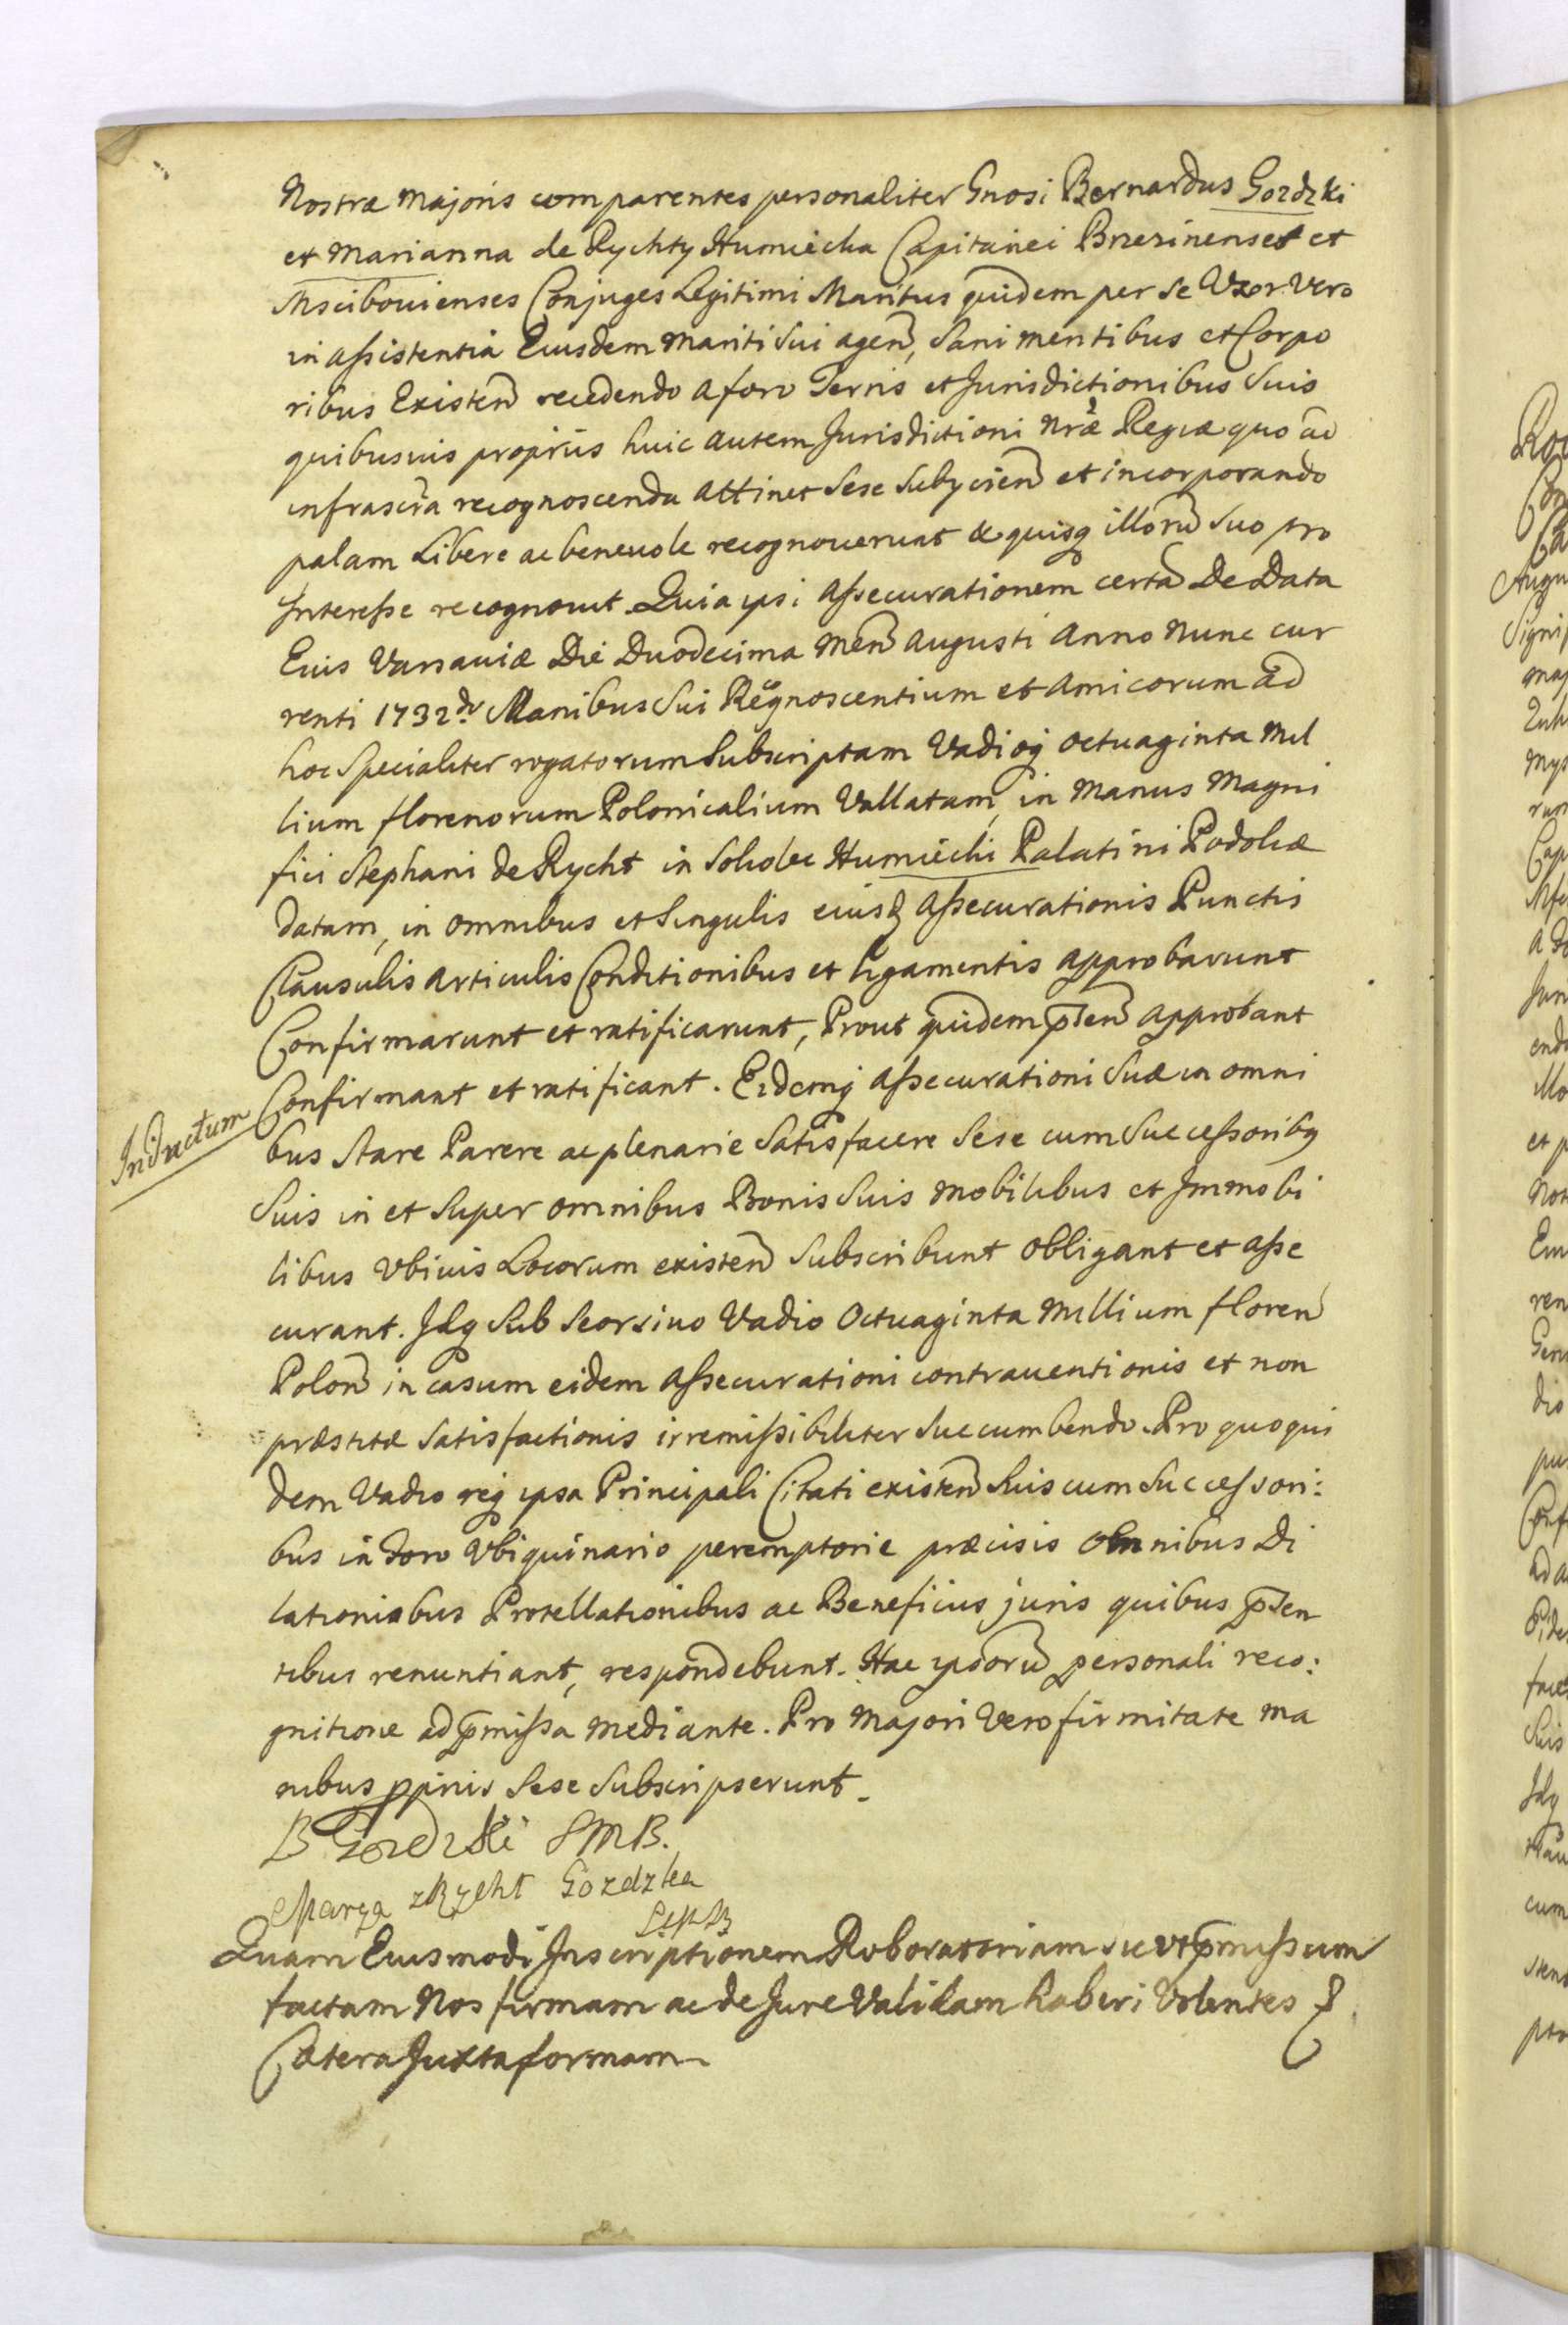 Nostræ Majoris comparentes personaliter Gnosi Bernardus Gozdzki
et Marianna de Rychty Humiecka Capitanei Brzesinenses et
Mscibovienses Conjuges Legitimi Maritus quidem per se Uxor Vero
in assistentia Eiusdem Mariti Sui agen, Sani mentibus et Corpo
ribus Existen recedendo a foro Terris et Jurisdictionibus Suis
quibusvis proprijs huic autem Jurisdictioni Nræ Regiæ quo ad
infrascra recognoscenda attinet Sese Subycien et incorporando
palam Libere ac benevole recognoverunt & quisq illoru Suo pro
Interesse recognovit Quia ipsi Assecurationem certa De Data
Eius Varsaviæ Die Duodecima Men Augusti Anno Nunc cur
renti 1732do Manibus Sui Recognoscentium et Amicorum ad
hoc Specialiter rogatorum Subscriptam Vadioq octuaginta Mil
lium florenorum Polonicalium Vallatam, in Manus Magni
fici Stephani de Rycht in Solodec Humiecki Palatini Podoliæ
datam, in omnibus et Singulis eiusq Assecurationis Punctis
Clausulis Articulis Conditionibus et ligamentis approbarunt
Confirmarunt et ratificarunt, Prout quidem pnten approbant
Confirmant et ratificant. Eidemq Assecurationi Suæ in omni
Inductum
bus Stare Parere ac plenarie Satisfacere Sese cum Successoribq
Suis in et Super omnibus Bonis Suis mobilibus et Immobi
libus Ubivis Locorum existen Subscribunt obligant et asse
curant. Idq Sub Seorsivo Vadio Octuaginta Millium floren
Polon in casum eidem Assecurationi contraventionis et non
præstitæ Satisfactionis irremissibiliter Succumbendo. Pro quo qui
dem Vadio req ipsa Principali Citati existen Suis cum Successori:
bus in Foro Ubiquinario peremptorie præcisis Omnibus Di
lationibus Protellationibus ac Beneficiis juris quibus pnten
tibus renuntiant, respondebunt. Hac ipsoru personali reco:
gnitione ad pmissa mediante. Pro Majori Vero firmitate ma
nibus pprijs Sese Subscripserunt.
B Gozdzki SMB.
Marya z Rycht Gozdzka
Quam Eiusmodi Inscriptionem Roboratoriam sic ut pmissum
factam Nos firmam ac de Jure Validam haberi Volentes &
Cætera Juxta formam